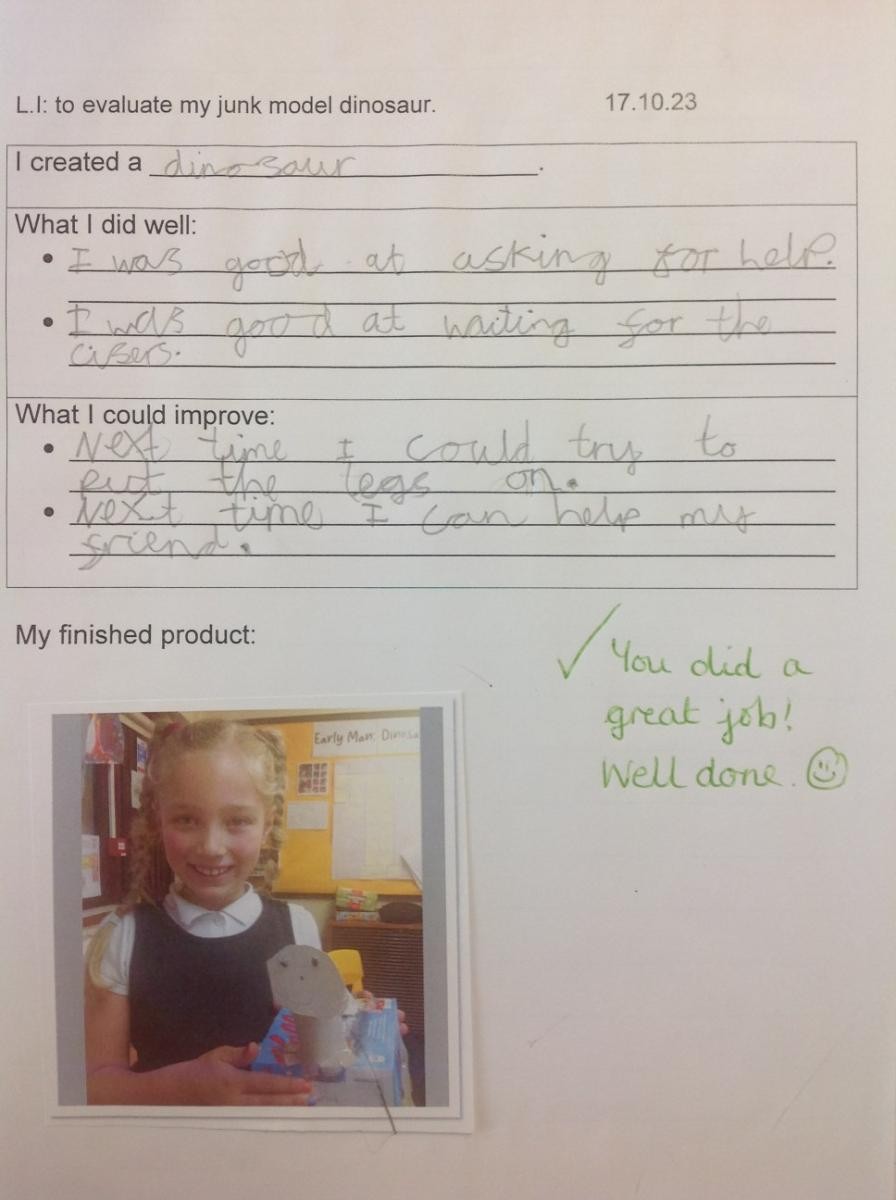 L.I: to evaluate my junk model dinosaur.
17.10.23
I created a dinosaur.
What I did well:
• I was good at asking for help.
• I was good at waiting for the
cisers.
What I could improve:
• Next time I could try to
put the legs on.
• Next time I can help my
friend.
My finished product:
✓ You did a
great job!
Well done. ☺
Early Man. Dinosa